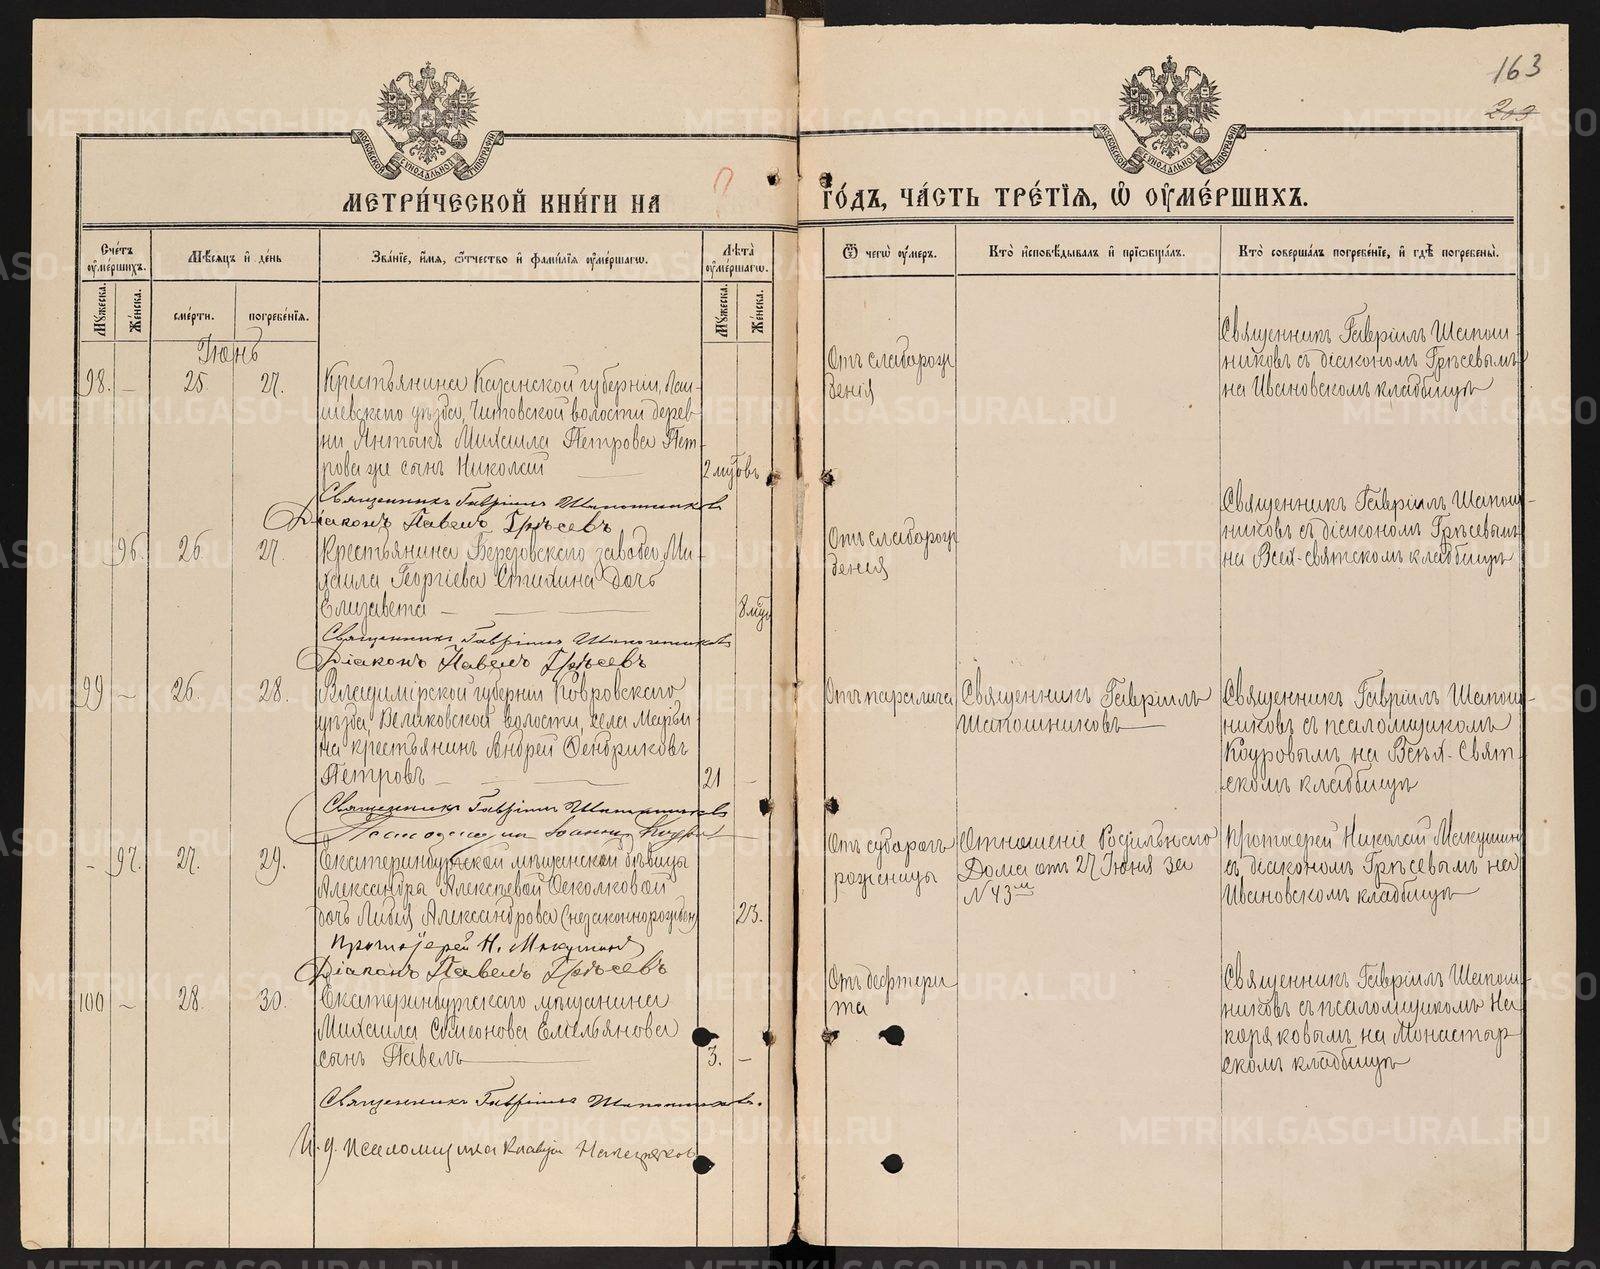 163
203
МОСКОВСКОЙ СѴНОДАЛЬНОЙ ТИПОГРАФІИ
МОСКОВСКОЙ СѴНОДАЛЬНОЙ ТИПОГРАФІИ
МЕТРИ́ЧЕСКОЙ КНИ́ГИ НА
ГО́ДЪ, ЧА́СТЬ ТРЕ́ТІѦ, Ѡ҆ ОУ҆МЕ́РШИХЪ.
Сче́тъ оу҆ме́ршихъ.
Мѣ́сѧцъ и҆ де́нь
Зва́нїе, и҆́мѧ, ѻ҆́тчество и҆ фами́лїѧ оу҆ме́ршагѡ.
Лѣ́та̀ оу҆ме́ршагѡ.
Ѿ чегѡ̀ оу҆́меръ.
Кто̀ и҆сповѣ́дывалъ и҆ прїѡбща́лъ.
Кто̀ соверша́лъ погребе́нїе, и҆ гдѣ̀ погребены̀.
Мꙋ́жеска.
Же́нска.
сме́рти.
погребе́нїѧ.
Мꙋ́жеска.
Же́нска.
Іюнь
98. – 25. 27.
Крестьянина Казанской губерніи, Лаи-
шевскаго уѣзда, Читовской волости дерев-
ни Янтыкъ Михаила Петрова Пет-
рова же сынъ Николай
2 мцовъ
Отъ слаборож
денія
Священникъ Гавріилъ Шапош-
никовъ съ діакономъ Грѣсевымъ
на Ивановскомъ кладбищѣ
Священникъ Гавріилъ Шапошниковъ
Діаконъ Павелъ Грѣсевъ
96. 26. 27.
Крестьянина Березовскаго завода Ми-
хаила Георгіева Стихина дочь
Елизавета
8 мцъ
Отъ слаборож
денія
Священникъ Гавріилъ Шапош-
никовъ съ діакономъ Грѣсевымъ
на Всѣ-святскомъ кладбищѣ
Священникъ Гавріилъ Шапошниковъ
Діаконъ Павелъ Грѣсевъ
99 – 26. 28.
Владимірской губерніи Ковровскаго
уѣзда, Великовской волости, села Марьи
на крестьянинъ Андрей Фендриковъ
Петровъ
21 –
Отъ паралича
Священникъ Гавріилъ
Шапошниковъ
Священникъ Гавріилъ Шапош-
никовъ съ псаломщикомъ
Кодровымъ на Всѣх-Свят-
скомъ кладбищѣ
Священникъ Гавріилъ Шапошниковъ
– 97. 27. 29.
Екатеринбургской мѣщанской дѣвицы
Александры Алексѣевой Осколковой
дочь Лидія Александрова (незаконнорожден)
23.
Отъ судорогъ
роженицы
Отношеніе Родильнаго
Дома отъ 27 Іюня за
N 43м
Протоіерей Николай Макушинъ
съ діакономъ Грѣсевымъ на
Ивановскомъ кладбищѣ
Протоіерей Н. Макушинъ
Діаконъ Павелъ Грѣсевъ
100 – 28. 30.
Екатеринбургскаго мѣщанина
Михаила Симеонова Емельянова
сынъ Павелъ
3. –
Отъ дифтери
та
Священникъ Гавріилъ Шапош-
никовъ съ псаломщикомъ На
коряковымъ на Монастыр
скомъ кладбищѣ
Священникъ Гавріилъ Шапошниковъ.
И. д. псаломщика
METRIKI.GASO-URAL.RU